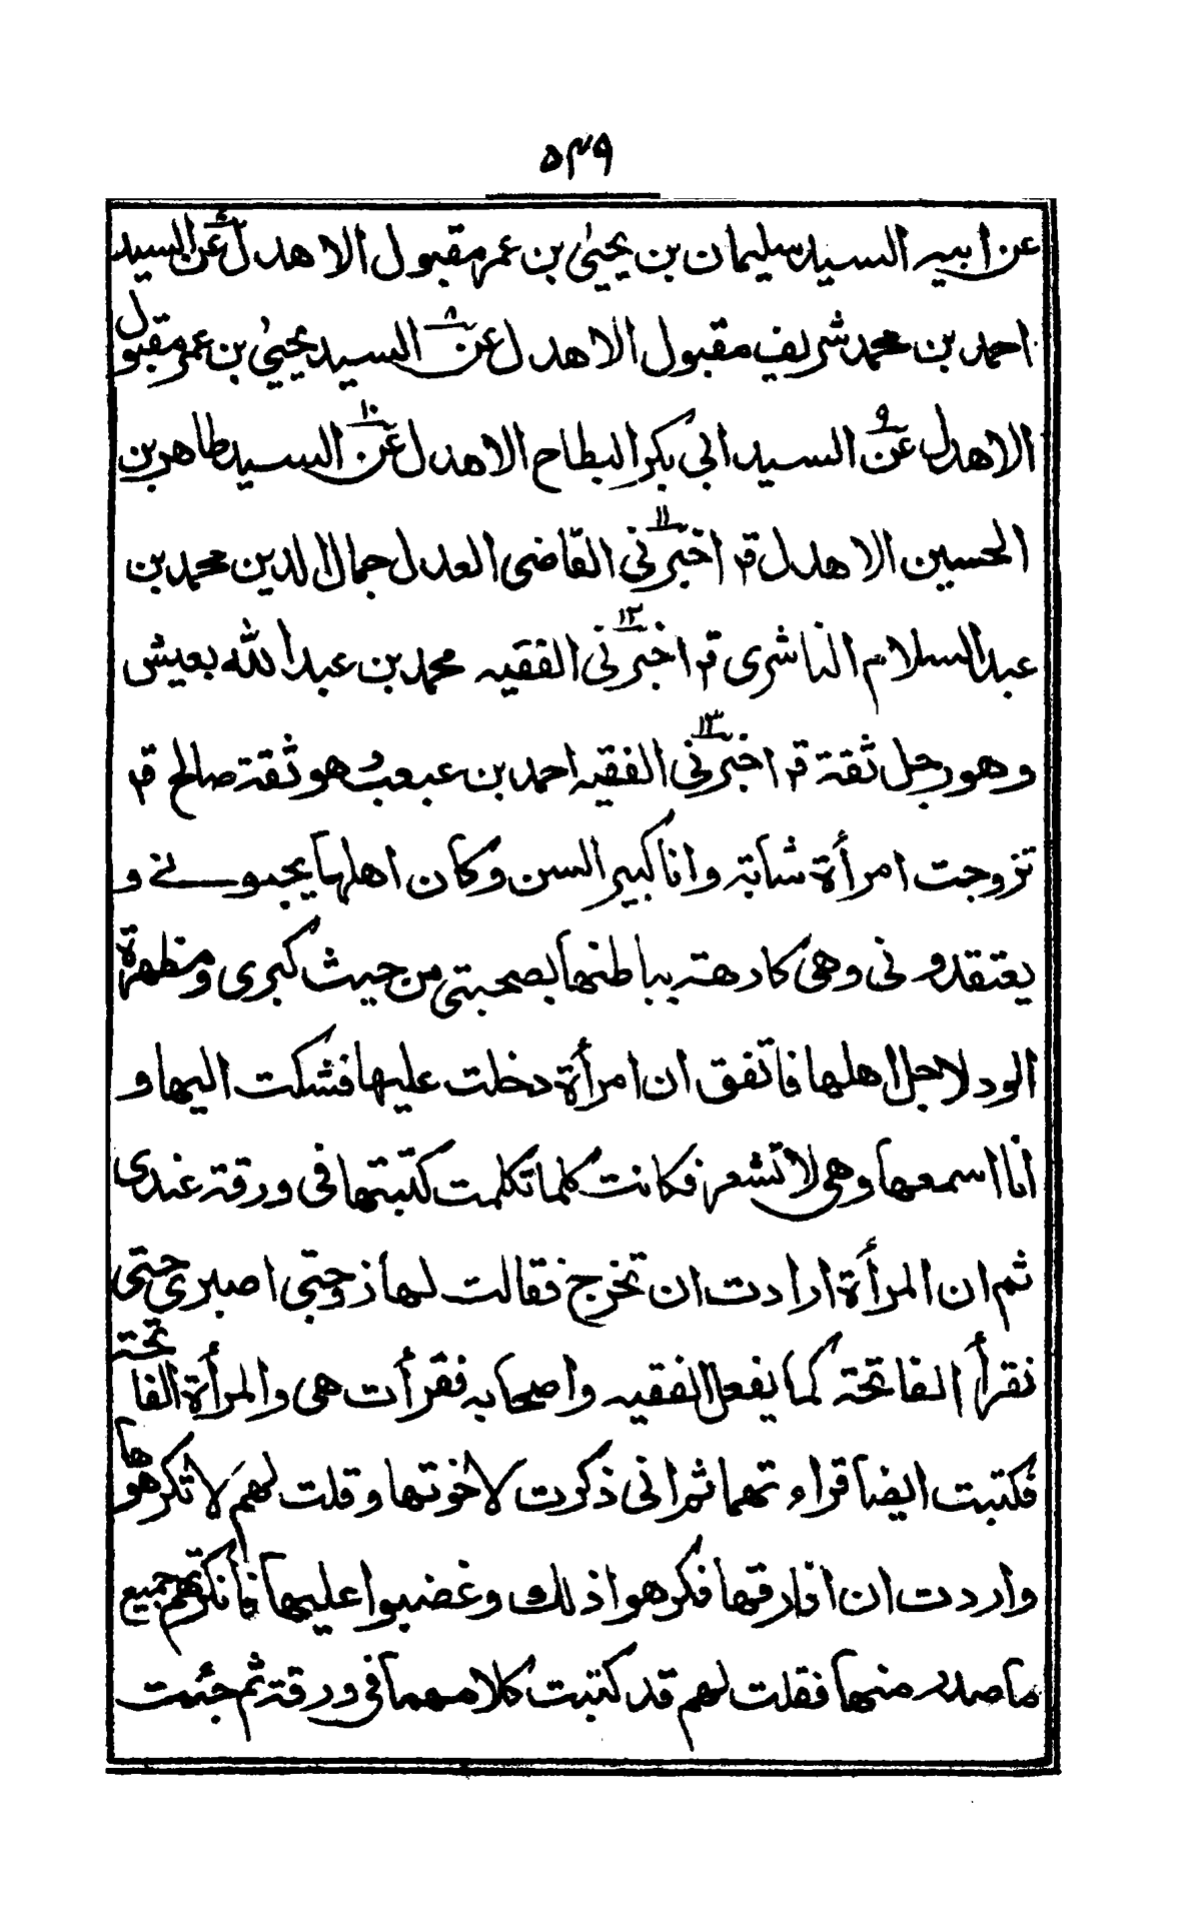 ٥٤٩
عن ابيه السيد سليمان بن يحيىٰ بن عمر مقبول الاهدل عن السيد
احمد بن محمد شريف مقبول الاهدل عن ٨ السيد يحيىٰ بن عمر مقبول
الاهدل عن ٩ السيد ابى بكر البطاح الاهدل عن ١٠ السيد طاهر بن
الحسين الاهدل قر اخبرنى ١١ القاضى العدل جمال الدين محمد بن
عبد السلام الناشرى قر اخبرنى ١٢ الفقيه محمد بن عبد الله بعيش
وهو رجل ثقة قر اخبرنى ١٣ الفقيه احمد بن عبعب وهو ثقة صالح قر
تزوجت امرأة شابة وانا كبير السن وكان اهلها يحبونے و
يعتقدونى وهى كارهة بباطنها بصحبتى من حيث كبرى ومظهرة
الود لاجل اهلها فاتفق ان امرأة دخلت عليها فشكت اليها و
انا اسمعها وهى لا تشعر فكانت كلما تكلمت كتبتها فى ورقة عندى
ثم ان المرأة ارادت ان تخرج فقالت لها زوجتى اصبرى حتى
نقرأ الفاتحة كما يفعل الفقيه واصحابه فقرأت هى والمرأة الفاتحة
فكتبت ايضا قراءتهما ثم انى ذكرت لاخوتها وقلت لهم لا تكرهوها
واردت ان افارقها فكرهوا ذلك وغضبوا عليها فأنكرتهم جميع
ما صدر منها فقلت لهم قد كتبت كلامهما فى ورقة ثم جئت